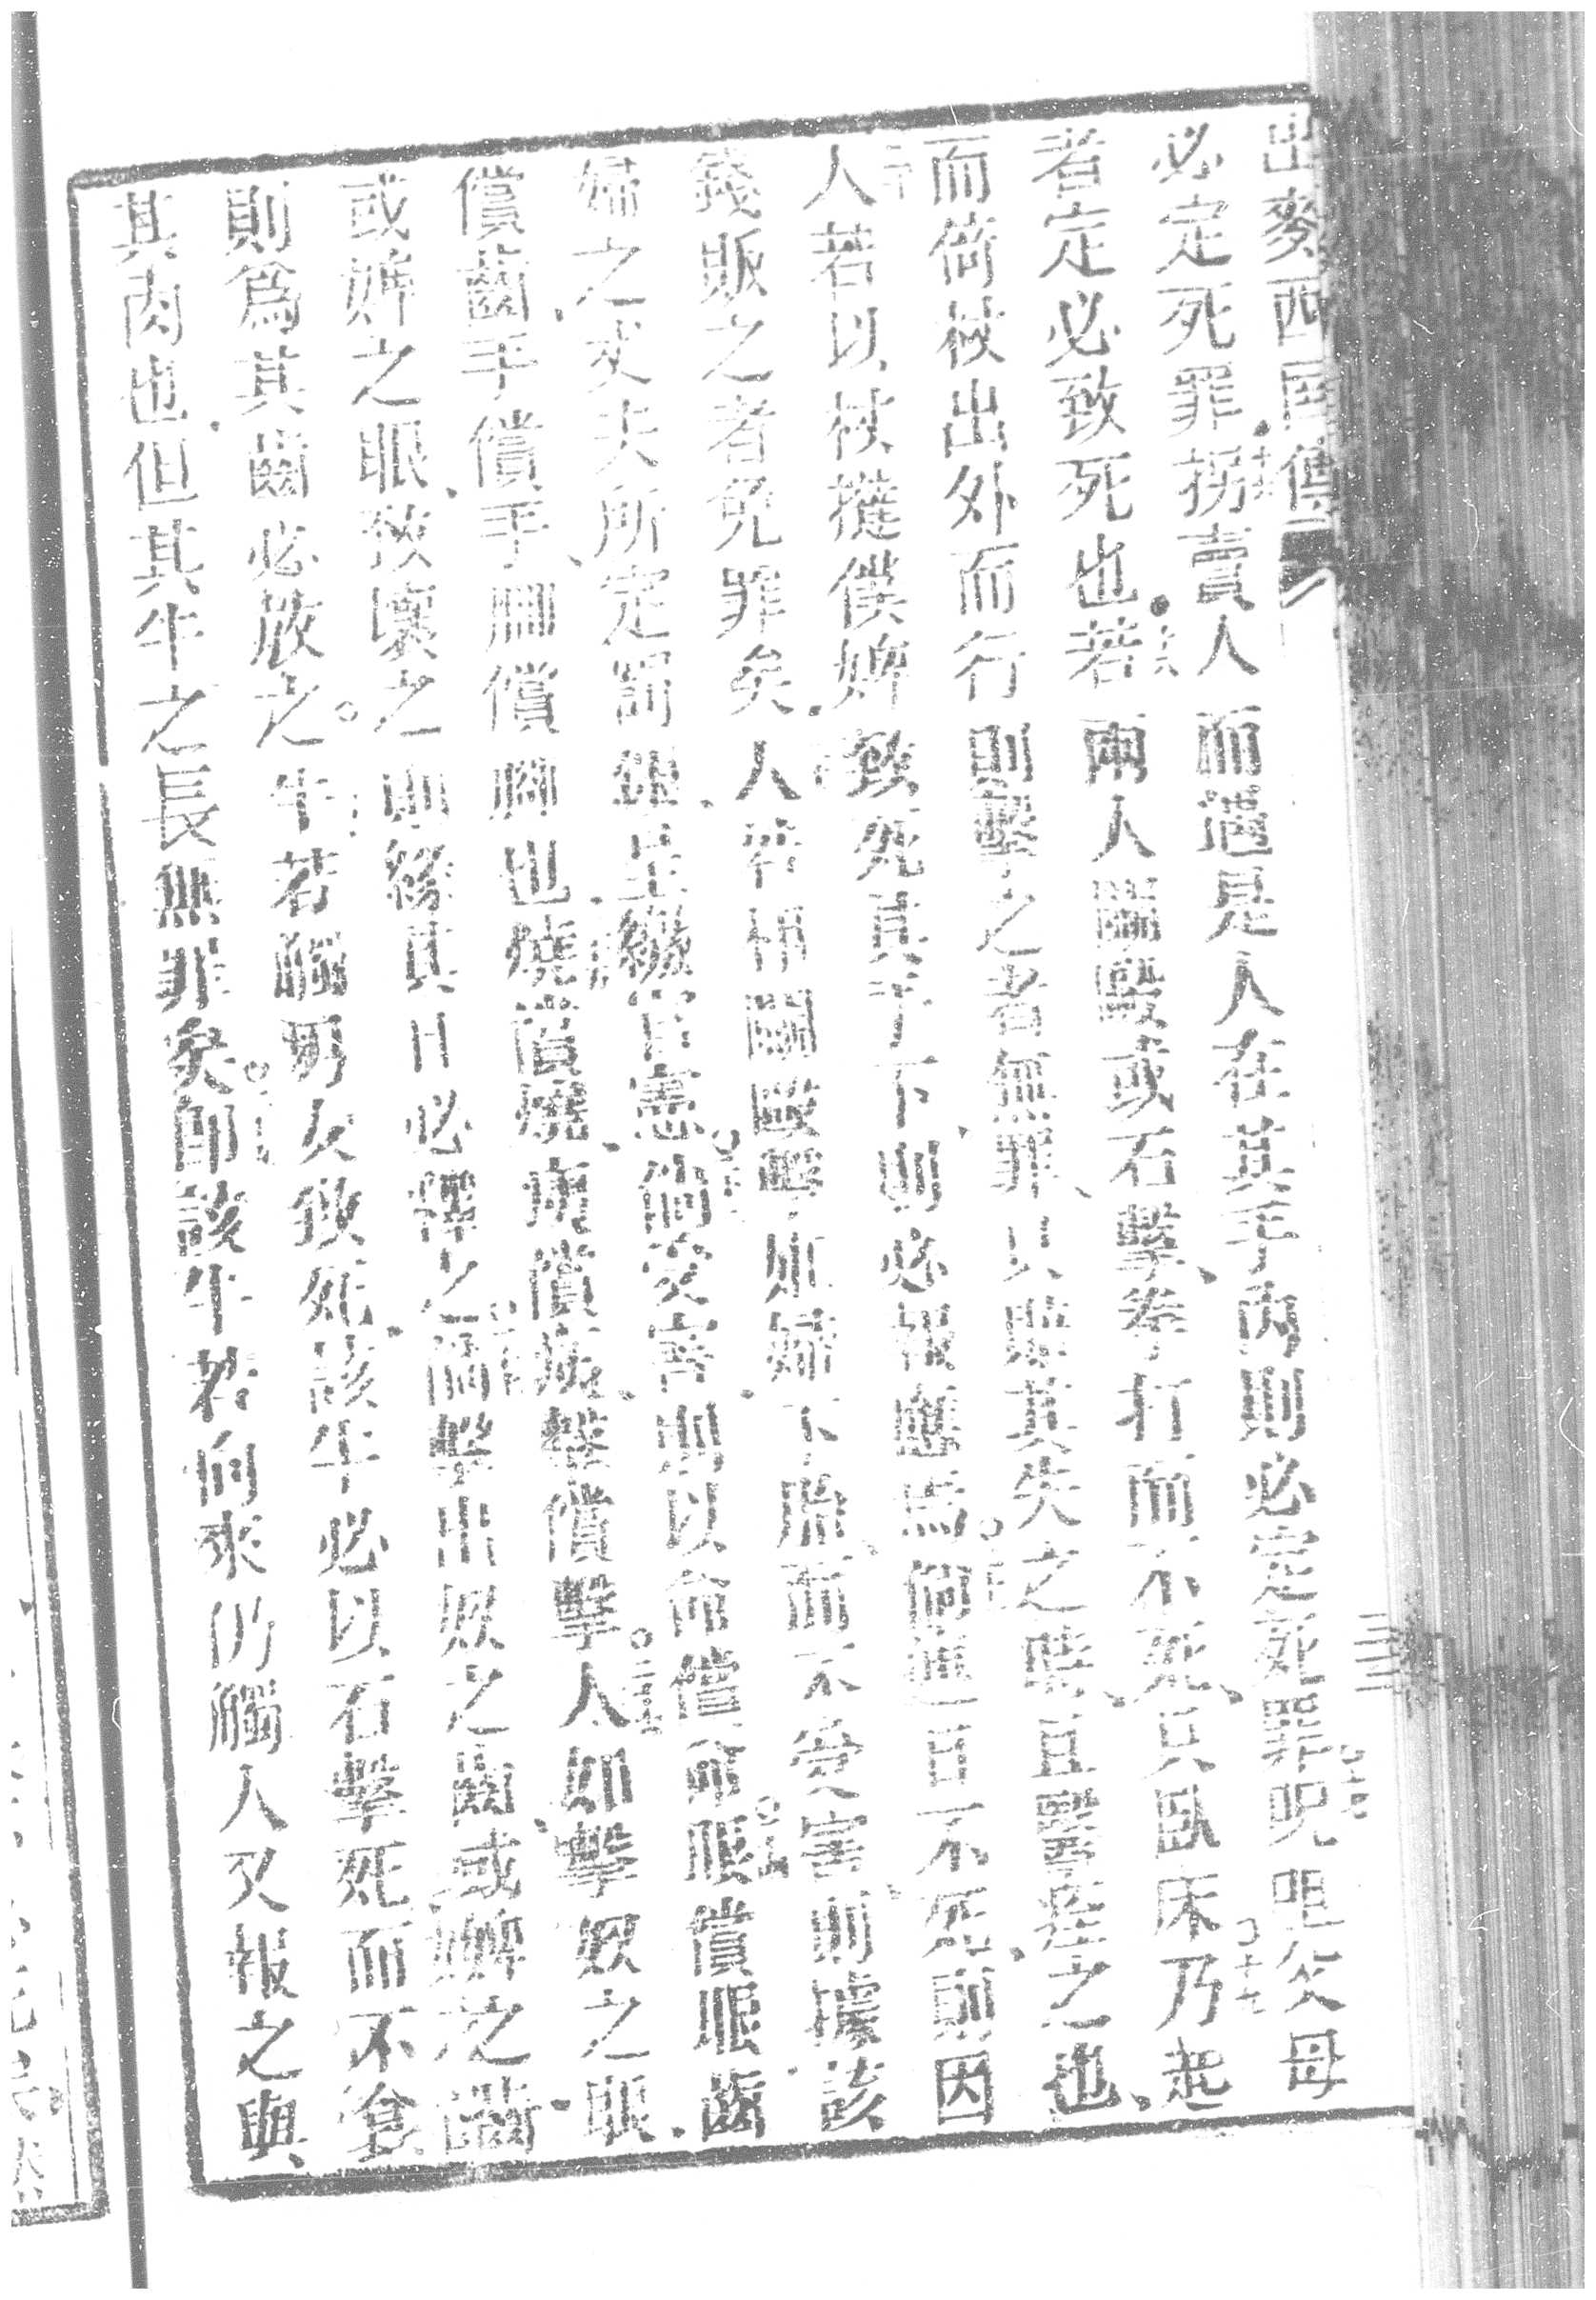 出麥西國傳
必定死罪拐賣人而遇是人在其手內則必定死罪呪詈父母
者定必致死也若兩人鬭毆或石擊拳打而不死只臥床乃起
而倚杖出外而行則擊之者無罪只賠其失之時且醫痊之也
人若以杖撻僕婢致死其手下則必被應罵倘延一日不死則因
錢販之者免罪矣人若相鬭毆擊姙婦下胎而不受害則據該
婦之丈夫所定罰銀呈繳官憲倘受害則以命償命眼償眼齒
償齒手償手脚償脚也燒償燒痍償痍擊償擊人如擊奴之眼
或婢之眼致壞之則緣其目必釋之倘擊出奴之齒或婢之齒
則為其齒必放之牛若觸男女致死該牛必以石擊死而不食
其肉也但其牛之長無罪矣即該牛若向來仍觸人又報之與